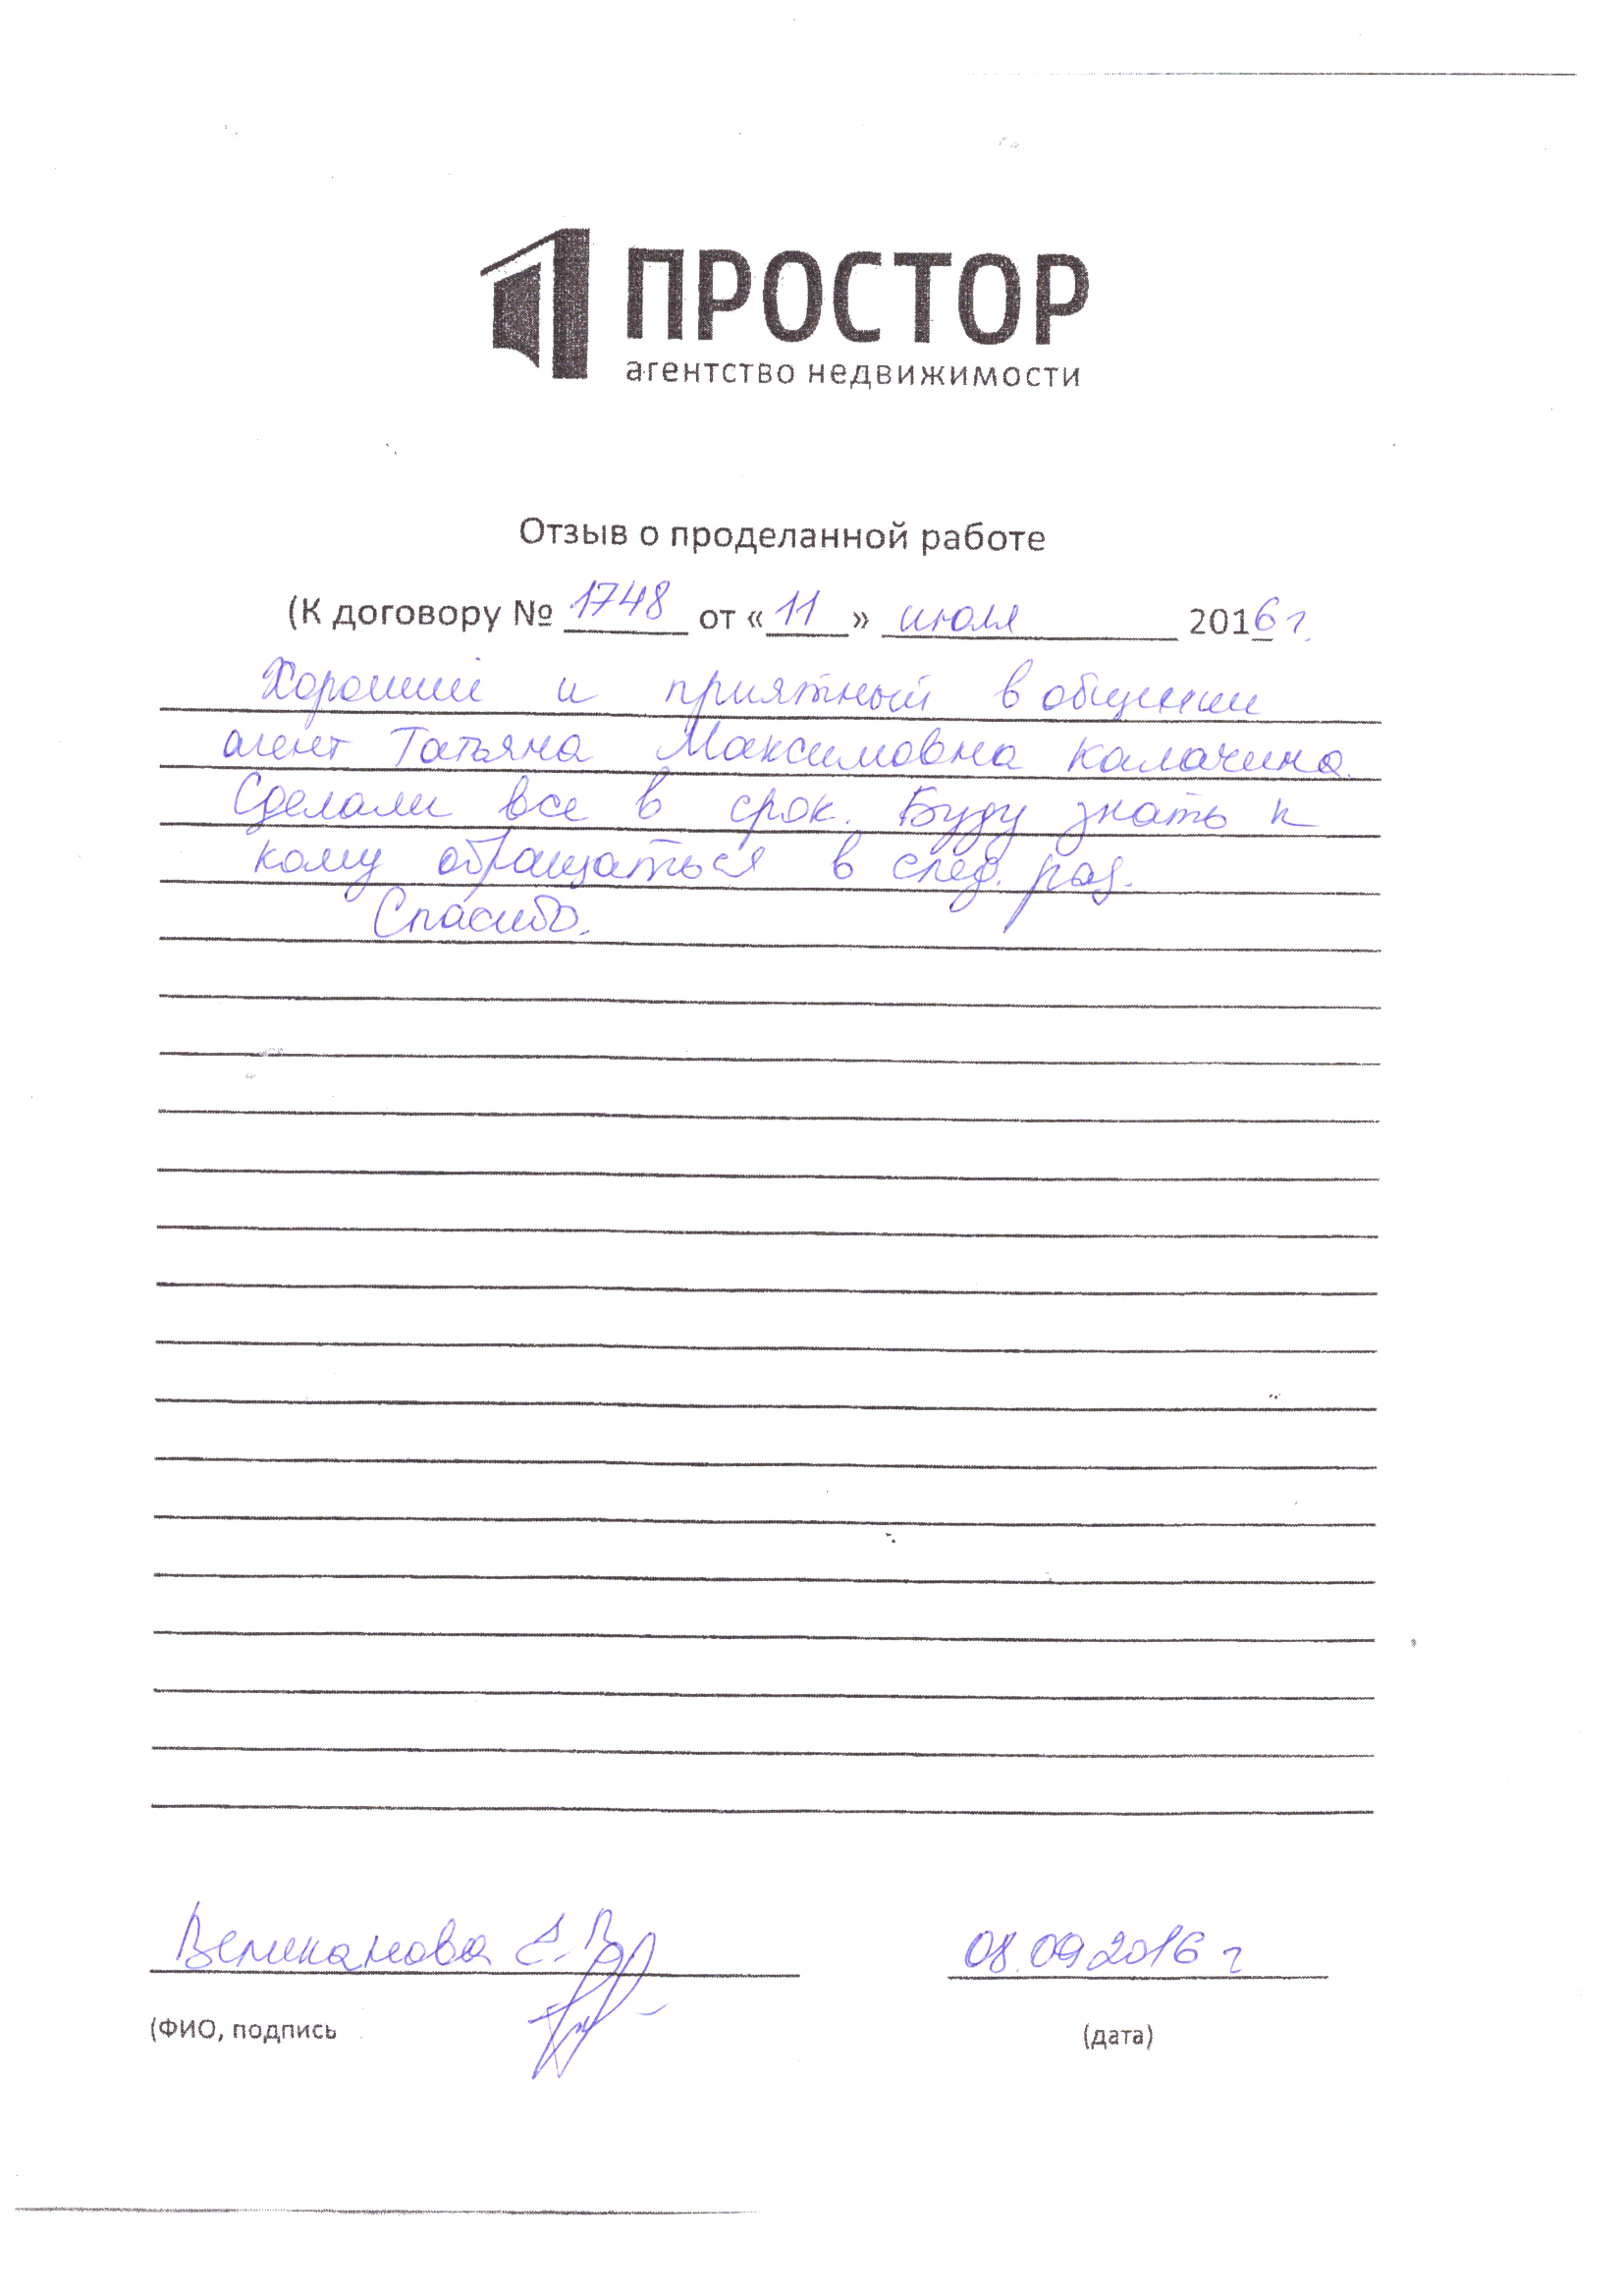 ПРОСТОР
агентство недвижимости
Отзыв о проделанной работе
(К договору № 1748 от «11» июля 2016 г.
Хороший и приятный в общении
агент Татьяна Максимовна Калачина.
Сделали все в срок. Буду знать к
кому обращаться в след. раз.
Спасибо.
Великанова Е.В. 08.09.2016 г
(ФИО, подпись (дата)